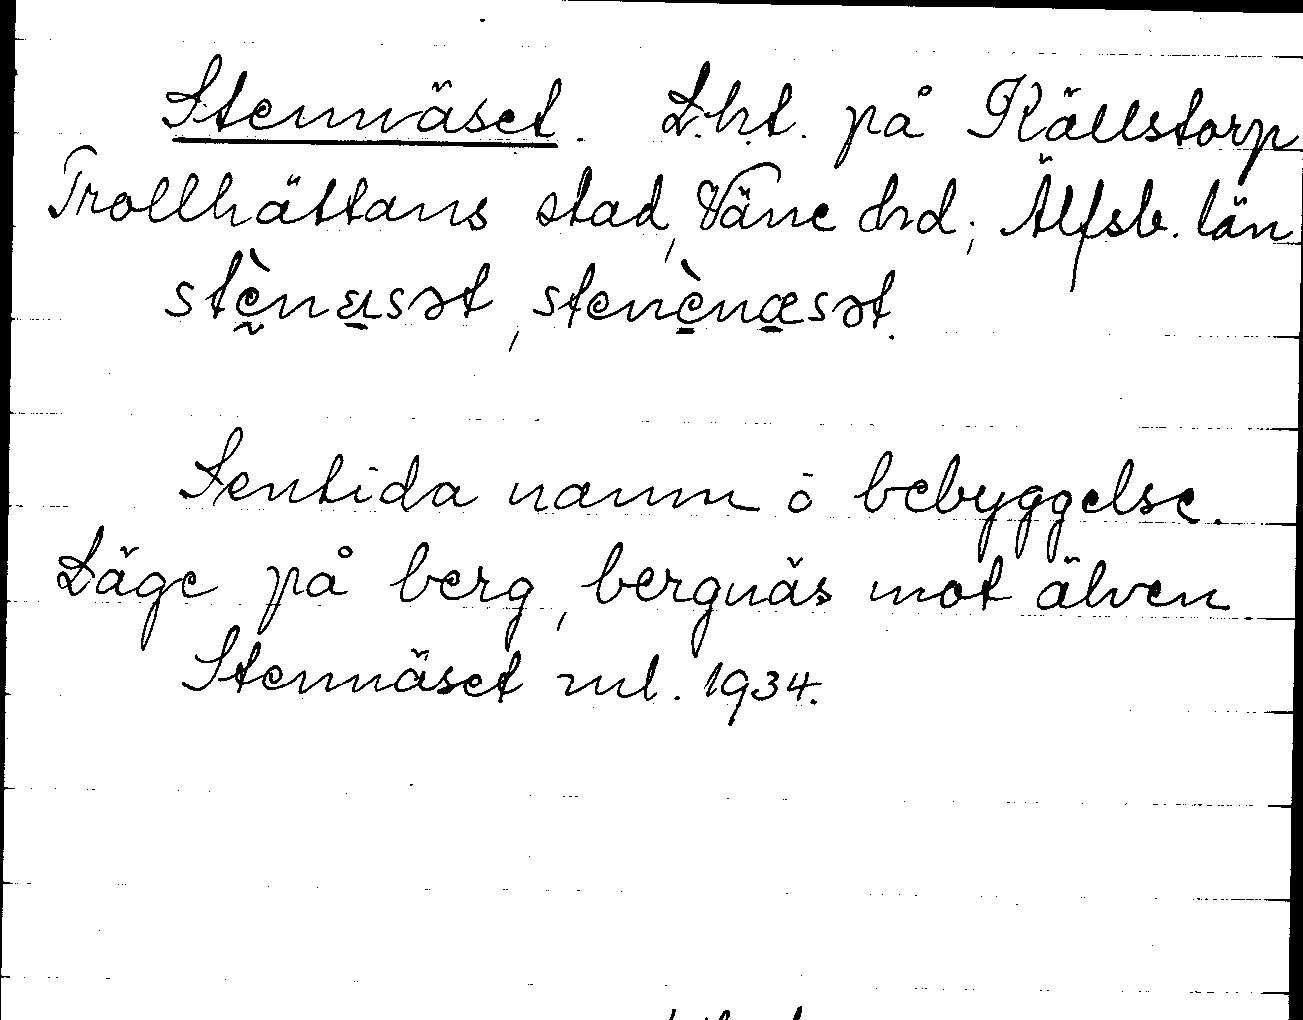 Stennäset. L.h.t. på Källstorp
Trollhättans stad, Väne hd; Älfsb. län
stḛ̀na̱sət, stenè̱næ̱sət.
Sentida namn å bebyggelse.
Läge på berg, bergnäs mot älven
Stennäset ml. 1934.